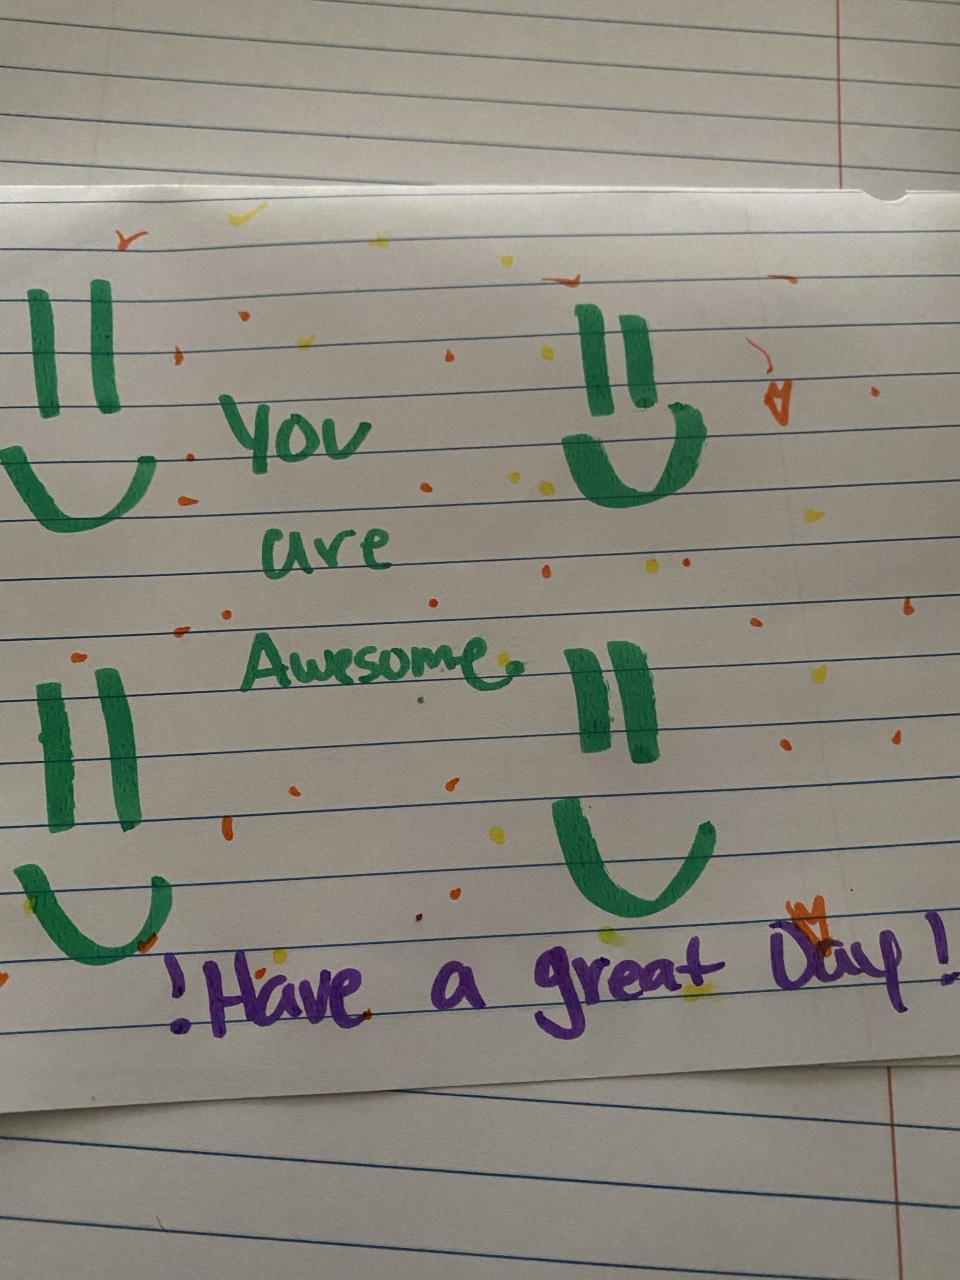 You
are
Awesome.
!Have a great Day!